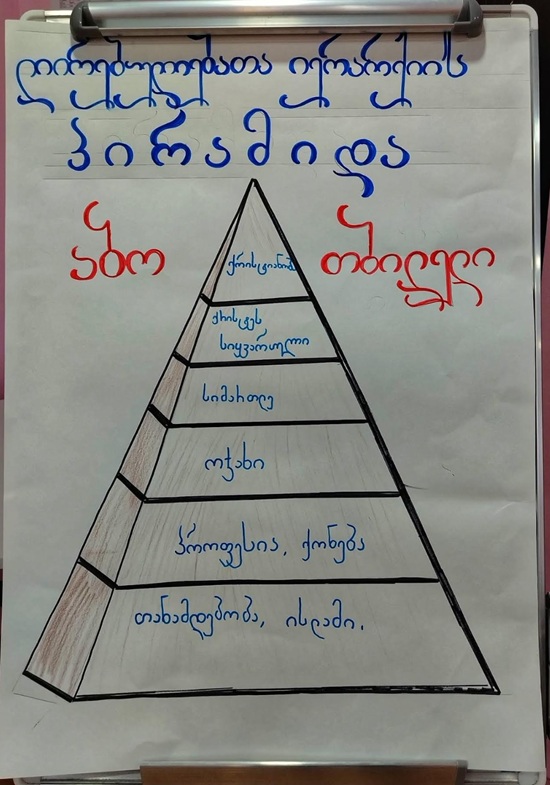 ღირებულებათა იერარქიის
პირამიდა
აბო თბილელი
ქრისტიანობა
ქრისტეს
სიყვარული
სიმართლე
ოჯახი
პროფესია, ქონება
თანამდებობა, ისლამი.